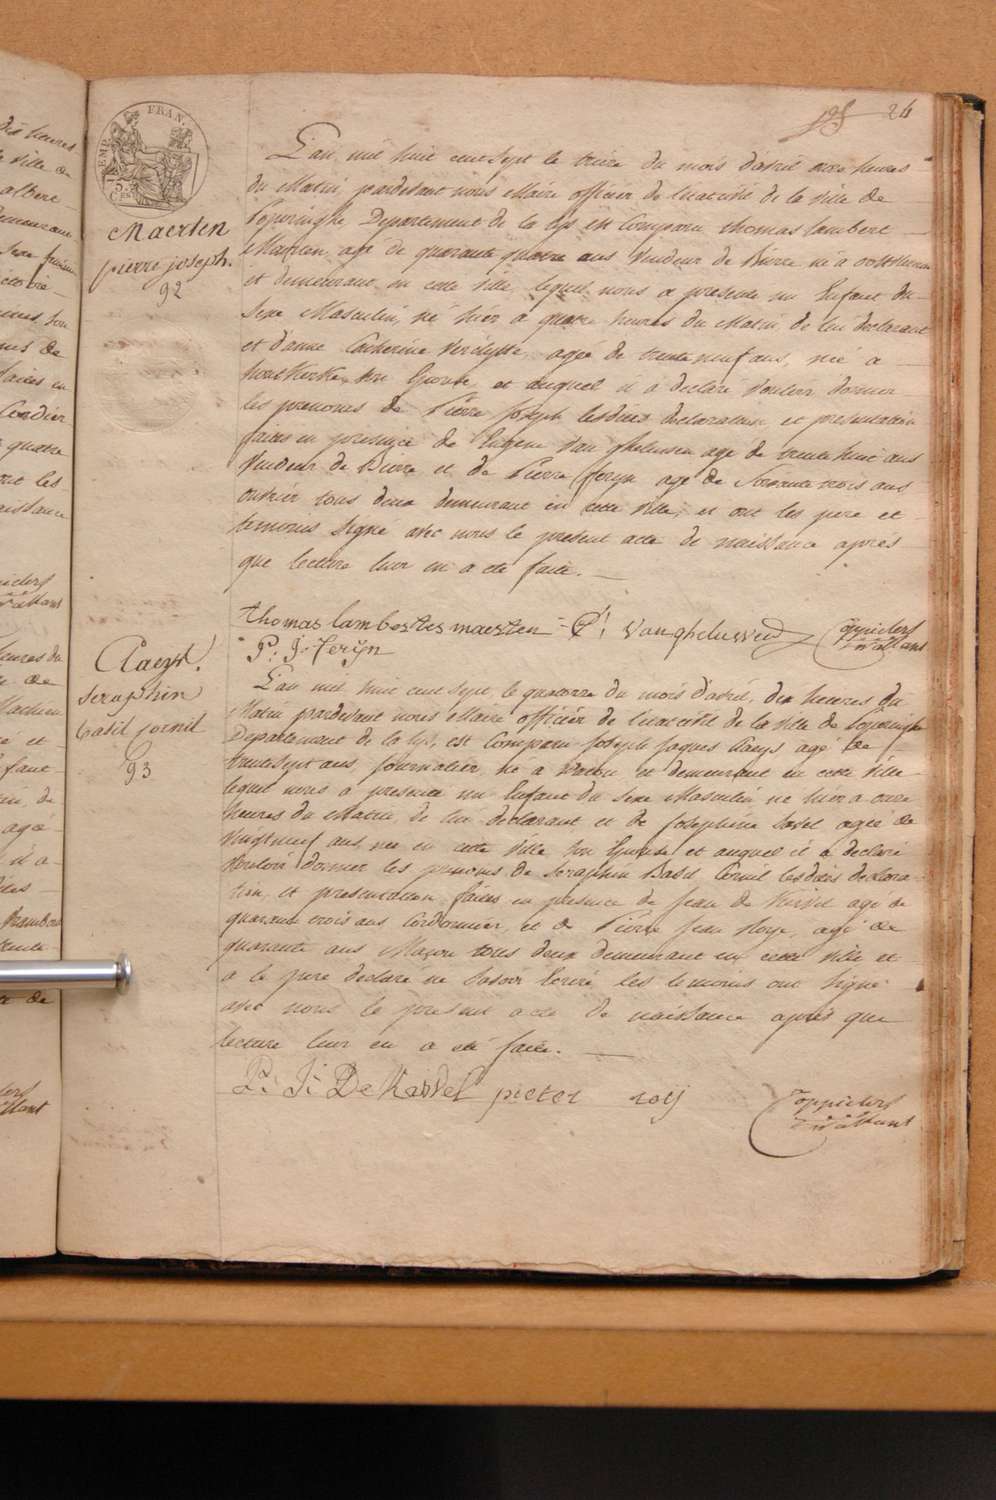 24
EMP. FRAN.
Maerten
pierre joseph.
92
L'an mil huit cent sept le treize du mois d'avril onze heures
du Matin, pardevant nous Maire officier de l'etat civil de la Ville de
Poperinghe Departement de la Lys est Comparu thomas lambert
Maerten, agé de quarante quatre ans Vendeur de Bierre né à
et demeurant en cette Ville, lequel nous a presenté un Enfant du
Sexe Masculin, né hier à quatre heures du Matin de lui declarant
et d'anne Catherine Verslype agée de trente neuf ans, née a
son Epouse, et auquel il à declaré Vouloir donner
les prenoms de Pierre Joseph lesdites declaration et presentation
faites en presence de Eugene Van gheluwen agé de trente huit ans
Vendeur de Bierre et de Pierre feryn agé de Soixante trois ans
ouvrier tous deux demeurant en cette Ville, et ont les pere et
temoins Signé avec nous le present acte de naissance après
que lecture leur en a été faite. —
thomas lambertes maerten E: vangheluwen
P: J: Feryn
Claeys.
Seraphin
basil cornil
93
L'an mil huit cent Sept, le quatorze du mois d'avril, dix heures du
Matin pardevant nous Maire officier de l'etat civil de la Ville de Poperinghe
Departement de la Lys, est Comparu Joseph Jaques Claeys agé de
trente Sept ans, Journalier, né a Watou et demeurant en cette Ville
lequel nous a presenté un Enfant du Sexe Masculin né hier a onze
heures du Matin, de lui declarant et de Josephine agée de
Vingt neuf ans, née en cette Ville, Son Epouse et auquel il a declaré
Vouloir donner les prenoms de Seraphin Basil Cornil lesdites declara-
tion et presentation faites en presence de Jean de agé de
quarante trois ans Cordonnier, et de Pierre Jean Roye, agé de
quarante ans Maçon tous deux demeurant en cette Ville et
a le pere declaré ne Savoir Ecrire les temoins ont Signé
avec nous le present acte de naissance après que
lecture leur en a été faite. —
P: J: De pieter roij